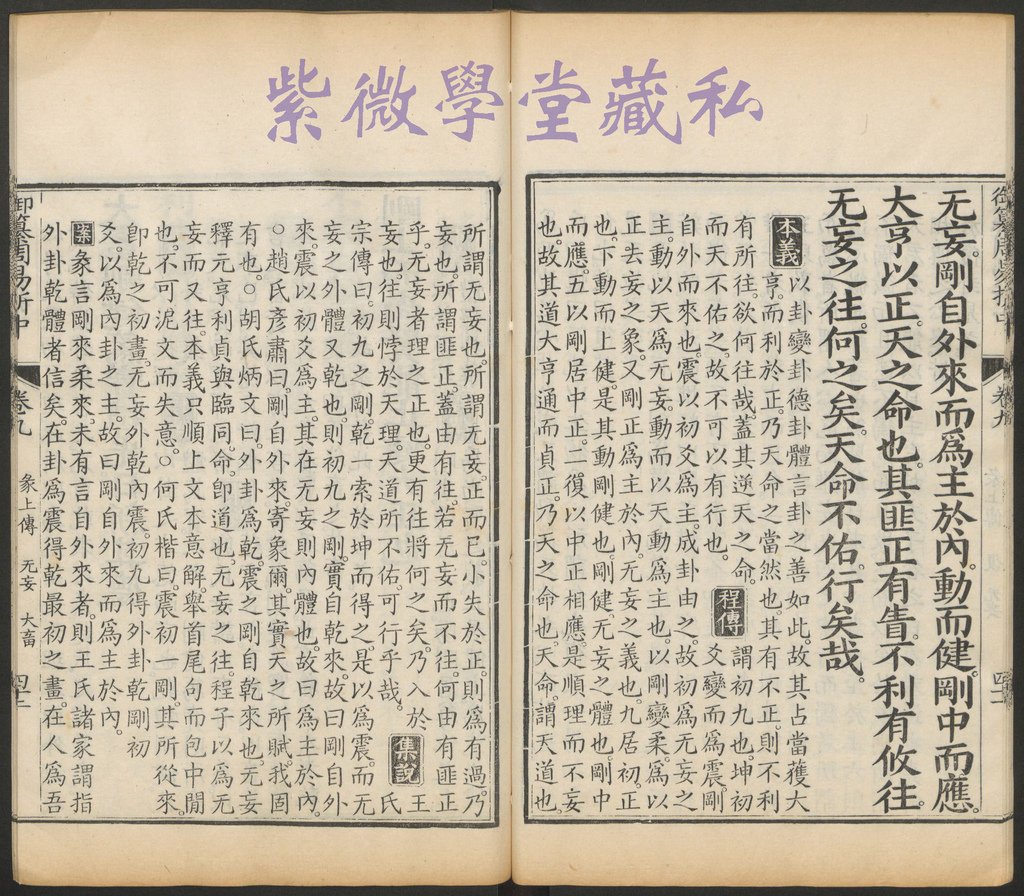 紫微學堂藏私
御纂周易折中 卷九
无妄。剛自外來而爲主於內。動而健。剛中而應。
大亨以正。天之命也。其匪正有眚。不利有攸往。
无妄之往。何之矣。天命不佑。行矣哉。
本義
以卦變卦德卦體言卦之善如此。故其占當獲大
亨。而利於正。乃天命之當然也。其有不正。則不利
有所往。欲何往哉。蓋其逆天之命。
而天不佑之。故不可以有行也。
程傳
謂初九也。坤初
爻變而爲震。剛
自外而來也。震以初爻爲主。成卦由之。故初爲无妄之
主。動以天爲无妄。動而以天動爲主也。以剛變柔。爲以
正去妄之象。又剛正爲主於內。无妄之義也。九居初。正
也。下動而上健。是其動剛健也。剛健。无妄之體也。剛中
而應。五以剛居中正。二復以中正相應。是順理而不妄
也。故其道大亨通而貞正。乃天之命也。天命。謂天道也。
所謂无妄也。所謂无妄。正而已。小失於正。則爲有過。乃
妄也。所謂匪正。蓋由有往。若无妄而不往。何由有匪正
乎。无妄者理之正也。更有往將何之矣。乃入於
妄也。往則悖於天理。天道所不佑。可行乎哉。
集說
王
氏
宗傳曰。初九之剛。乾一索於坤而得之。是以爲震。而无
妄之外體又乾也。則初九之剛。實自乾來。故曰剛自外
來。震以初爻爲主。其在无妄則內體也。故曰爲主於內。
○趙氏彥肅曰。剛自外來。寄象爾。其實天之所賦。我固
有之。○胡氏炳文曰。外卦爲乾。震之剛自乾來也。无妄
釋元亨利貞。與臨同。命卽道也。无妄之往。程子以爲无
妄而又往。本義只順上文本意解。舉首尾句而包中閒
也。不可泥文而失意。○何氏楷曰。震初一剛。其所從來。
卽乾之初畫。无妄外乾內震。初九得外卦乾剛初
爻。以爲內卦之主。故曰剛自外來而爲主於內。
案
彖言剛來柔來。未有言自外來者。則王氏諸家謂指
外卦乾體者信矣。在卦爲震得乾最初之畫。在人爲吾
御纂周易折中 卷九 彖上傳 无妄 大畜